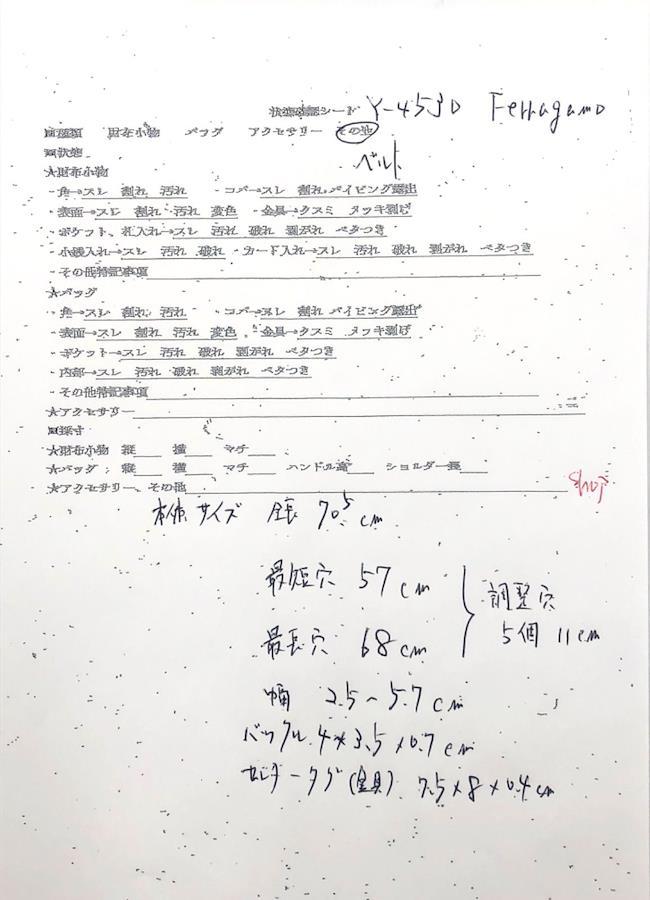 状態確認シート Y-4530 Ferragamo
□種類 財布小物 バッグ アクセサリー その他
□状態 ベルト
★財布小物
・角→スレ 割れ 汚れ ・コバ→スレ 割れ パイピング露出
・表面→スレ 割れ 汚れ 変色 ・金具→クスミ メッキ剥げ
・ポケット、札入れ→スレ 汚れ 破れ 剥がれ ベタつき
・小銭入れ→スレ 汚れ 破れ ・カード入れ→スレ 汚れ 破れ 剥がれ ベタつき
・その他特記事項
★バッグ
・角→スレ 割れ 汚れ ・コバ→スレ 割れ パイピング露出
・表面→スレ 割れ 汚れ 変色 ・金具→クスミ メッキ剥げ
・ポケット→スレ 汚れ 破れ 剥がれ ベタつき
・内部→スレ 汚れ 破れ 剥がれ ベタつき
・その他特記事項
★アクセサリー
□採寸
★財布小物 縦 横 マチ
★バッグ 縦 横 マチ ハンドル高 ショルダー長
★アクセサリー、その他
本体サイズ 全長 70.5cm
最短穴 57cm
調整穴
最長穴 68cm
5個 11cm
幅 2.5~5.7cm
バックル 4×3.5×0.7cm
センタータグ(金具) 7.5×8×0.4cm